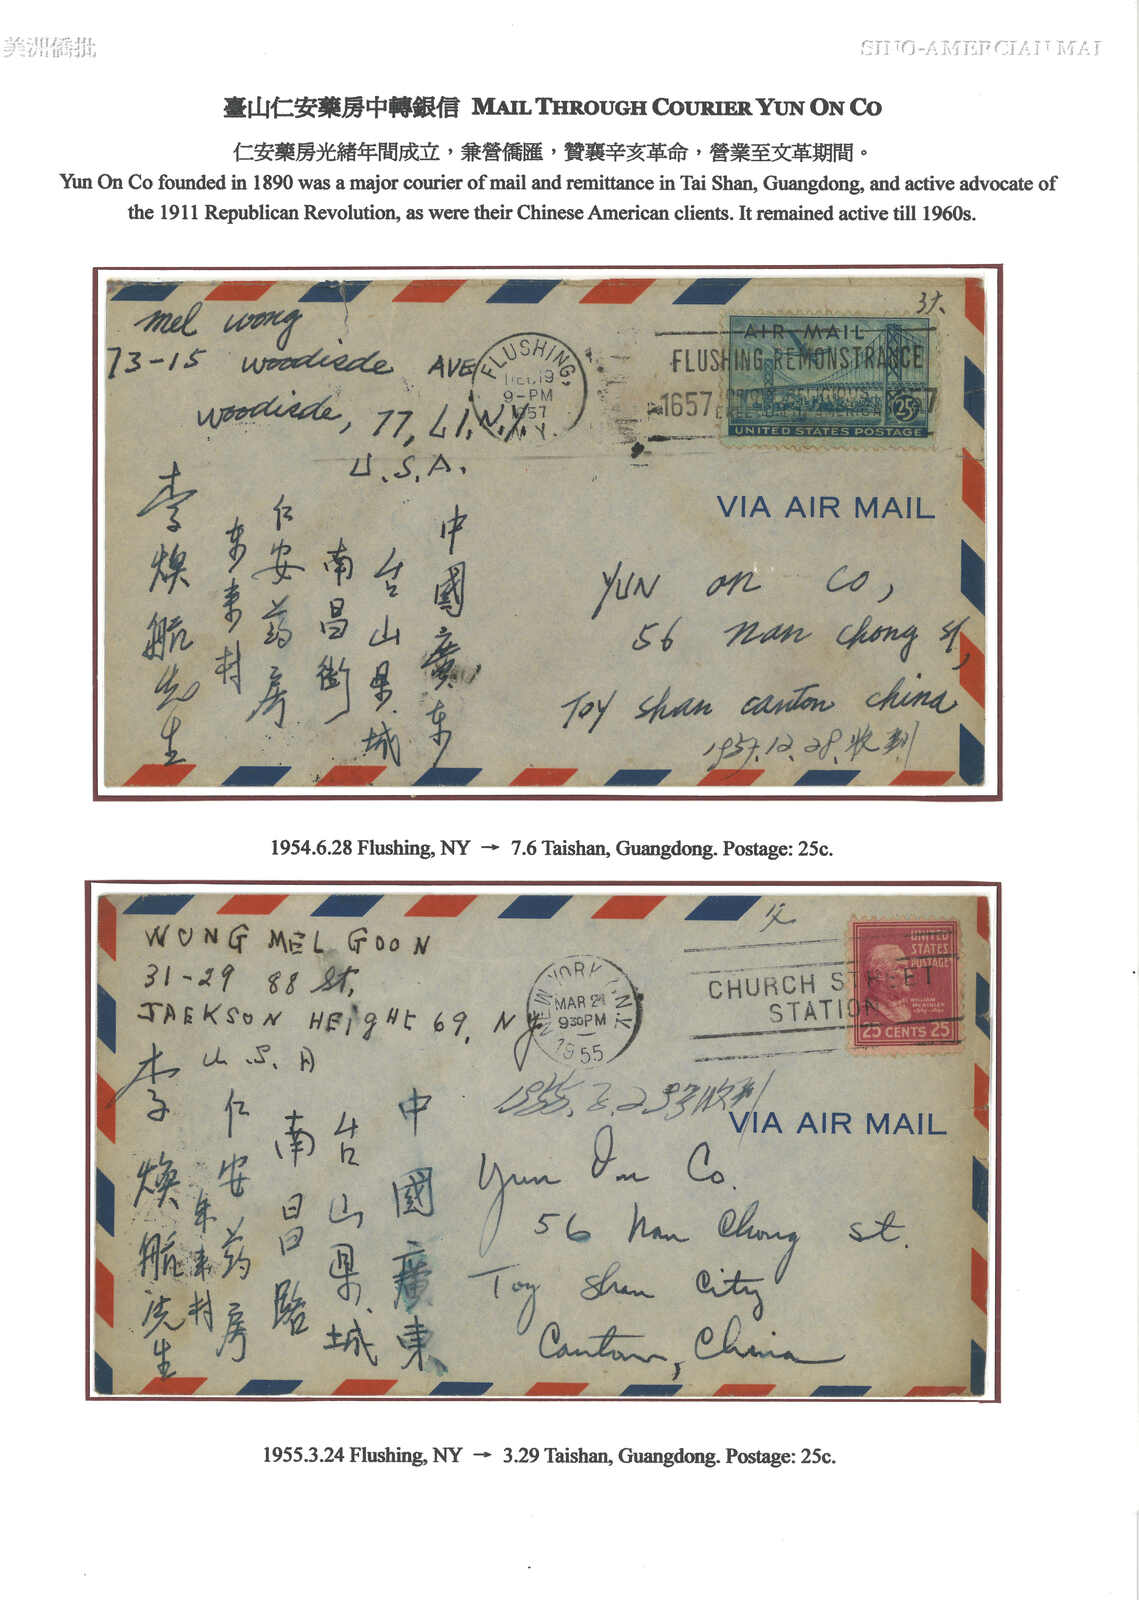 美洲僑批
SINO-AMERCIAN MAI
臺山仁安藥房中轉銀信 MAIL THROUGH COURIER YUN ON CO
仁安藥房光緒年間成立，兼營僑匯，贊襄辛亥革命，營業至文革期間。
Yun On Co founded in 1890 was a major courier of mail and remittance in Tai Shan, Guangdong, and active advocate of
the 1911 Republican Revolution, as were their Chinese American clients. It remained active till 1960s.
mel wong
73-15 woodisde AVE
woodisde, 77, L.I. N.Y.
U.S.A.
FLUSHING,
9-PM
1957
N.Y.
AIR MAIL
FLUSHING REMONSTRANCE
1657
25¢
UNITED STATES POSTAGE
VIA AIR MAIL
YUN on CO,
56 nan chong st,
Toy shan canton china
1957.12.28.收到
中國廣东
台山県城
南昌街
仁安药房
东来村
李焕航先生
1954.6.28 Flushing, NY → 7.6 Taishan, Guangdong. Postage: 25c.
WONG MEL GOON
31-29 88 St,
JAEKSON HEIGHt 69, N.Y.
U.S.A
父
NEW YORK, N.Y.
MAR 24
9 30 PM
1955
CHURCH STREET
STATION
UNITED
STATES
POSTAGE
WILLIAM
McKINLEY
25 CENTS 25
VIA AIR MAIL
Yun On Co.
56 Nan Chong st.
Toy Shan City
Canton, China
中國廣東
台山県城
南昌路
仁安药房
东来村
李焕航先生
1955.3.24 Flushing, NY → 3.29 Taishan, Guangdong. Postage: 25c.